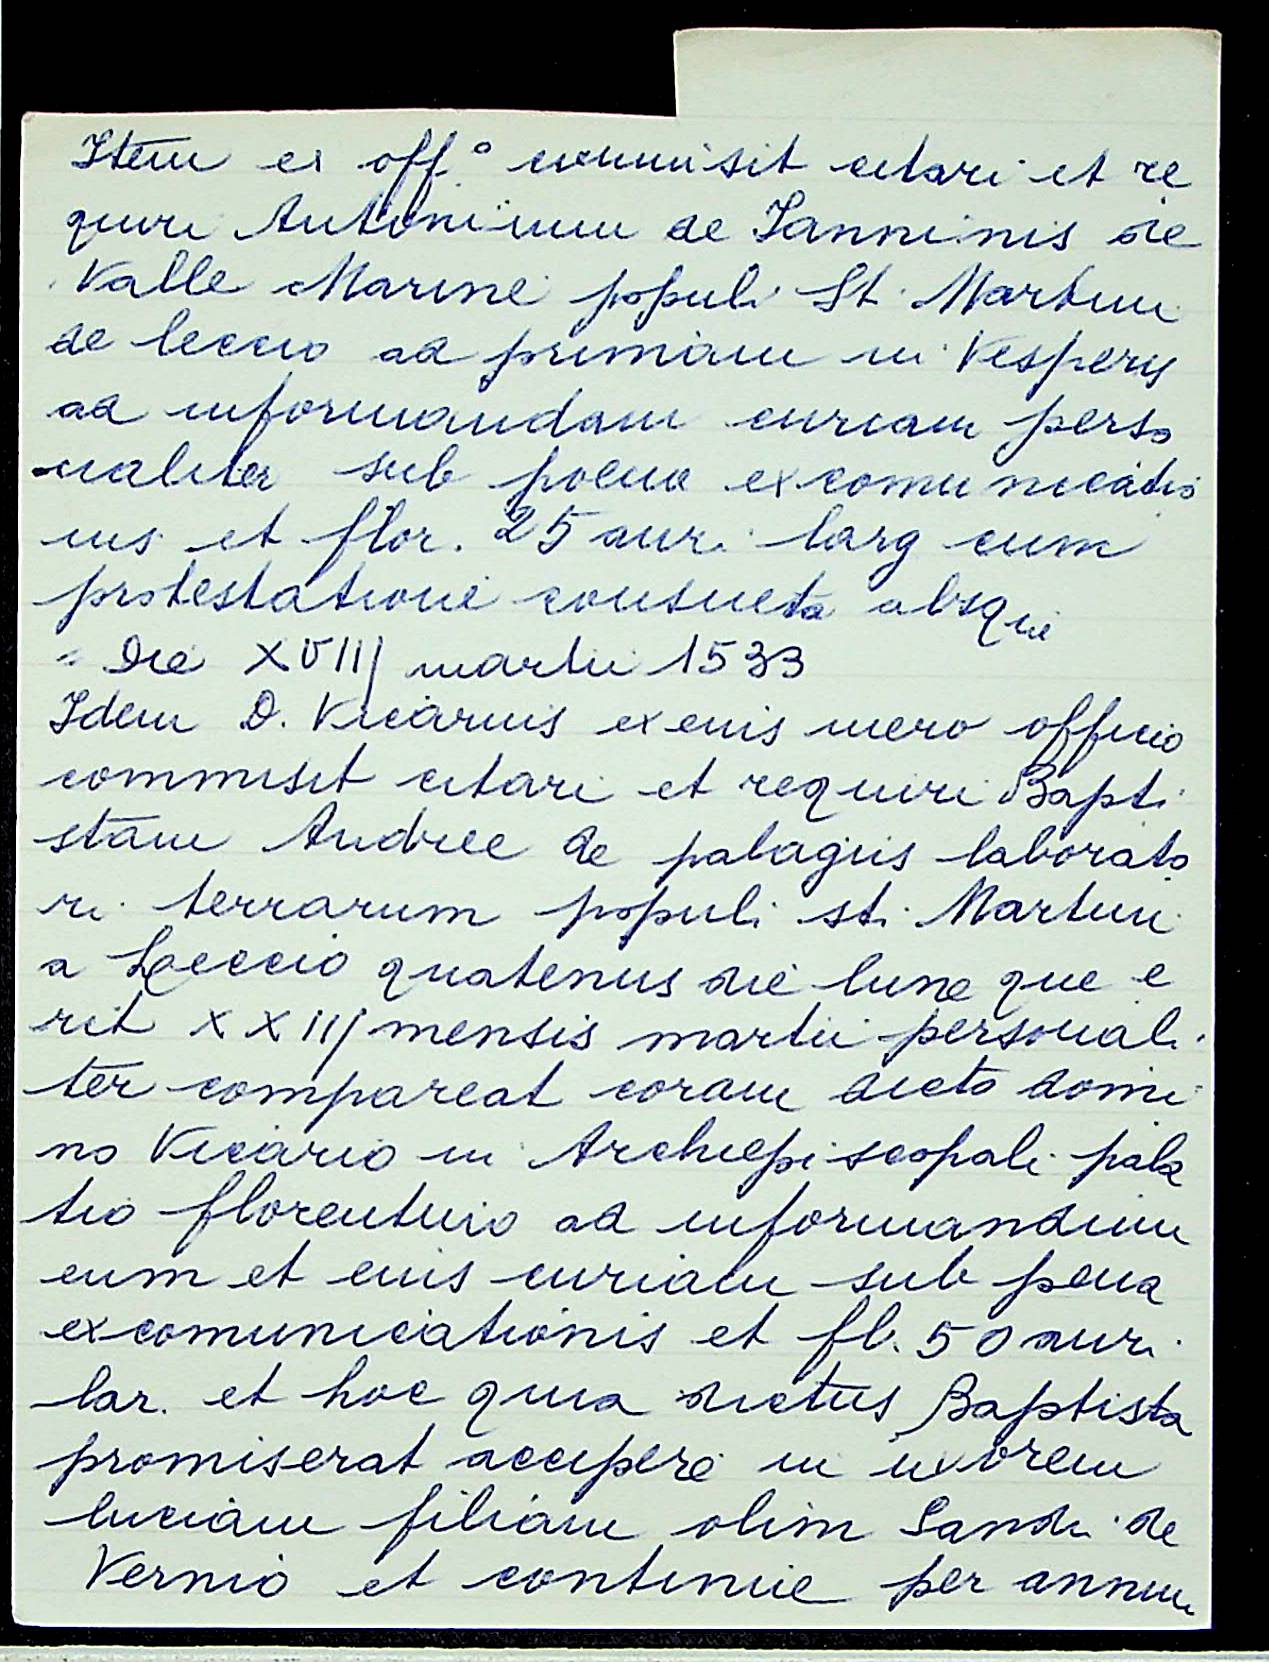 Item ex off.° commisit citari et re
quiri Antonium de Ianninis de
Valle Marine populi St. Martini
de leccio ad primam in Vesperis
ad informandam curiam perso
naliter sub poena excomunicatio
nis et flor. 25 auri larg cum
protestatione consueta absque
" Die XVIIJ martii 1533
Idem D. Vicarius ex eius mero officio
commisit citari et requiri Bapti
stam Andree de palagiis laborato
ri terrarum populi sti. Martini
a Leccio quatenus die lune que e
rit XXIIJ mensis martii personali
ter compareat coram dicto domi
no Vicario in Archiepiscopali pala
tio florentino ad informandum
eum et eius curiam sub pena
excomunicationis et fl. 50 auri
lar. et hoc quia dictus Baptista
promiserat accipere in uxorem
luciam filiam olim Sandri de
Vernio et continue per annum